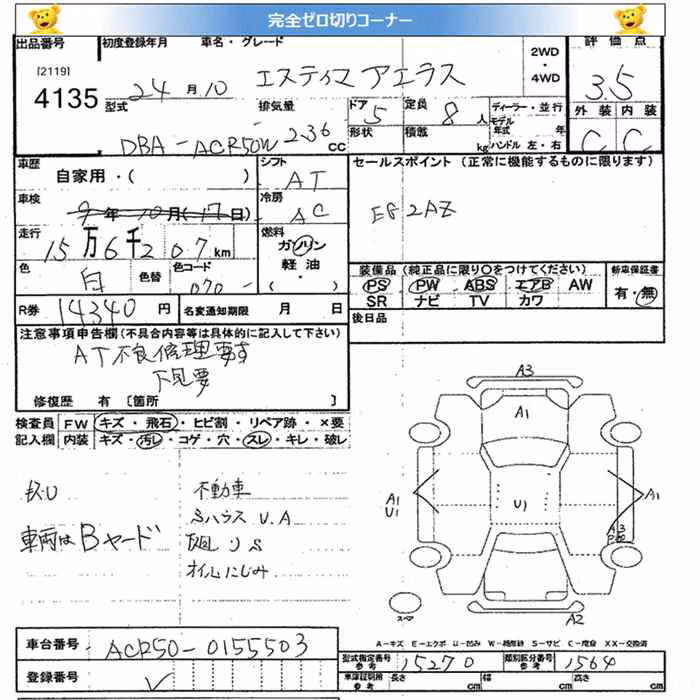 完全ゼロ切りコーナー
出品番号 初度登録年月 車名・グレード 2WD 評価点
[2119] 24月10 エスティマ アエラス ・ 3.5
4135 4WD
型式 排気量 ドア 5 定員 8人 ディーラー・並行 外装 内装
DBA-ACR50W 2.36 CC 形状 積載 kg モデル年式 年 C C
ハンドル 左・右
車歴 シフト セールスポイント (正常に機能するものに限ります)
自家用・( ) AT
車検 冷房 E82AZ
9年10月(17日) AC
走行 燃料
15万6千207km ガソリン
色 白 色替 色コード 070 軽油・ 装備品 (純正品に限り○をつけてください) 新車保証書
・( ) PS PW ABS エアB AW 有・無
R券 14340円 名変通知期限 月 日 SR ナビ TV カワ
注意事項申告欄(不具合内容等は具体的に記入して下さい) 後日品
AT不良修理要す
下見要
修復歴 有 [箇所 ]
検査員 FW キズ・飛石・ヒビ割・リペア跡・×要
記入欄 内装 キズ・汚レ・コゲ・穴・スレ・キレ・破レ
不動車
Sハウス U.A
車両はBヤード
オイルにじみ
A3
A1
A1 U1 U1 A1
A3
スペア A2
A-キズ E-エクボ U-凹み W-補修跡 S-サビ C-腐食 XX-交換済
車台番号 ACR50-0155503
型式指定番号 参考 15270 類別区分番号 参考 1564
登録番号
車庫証明用 参考 長さ cm 幅 cm 高さ cm